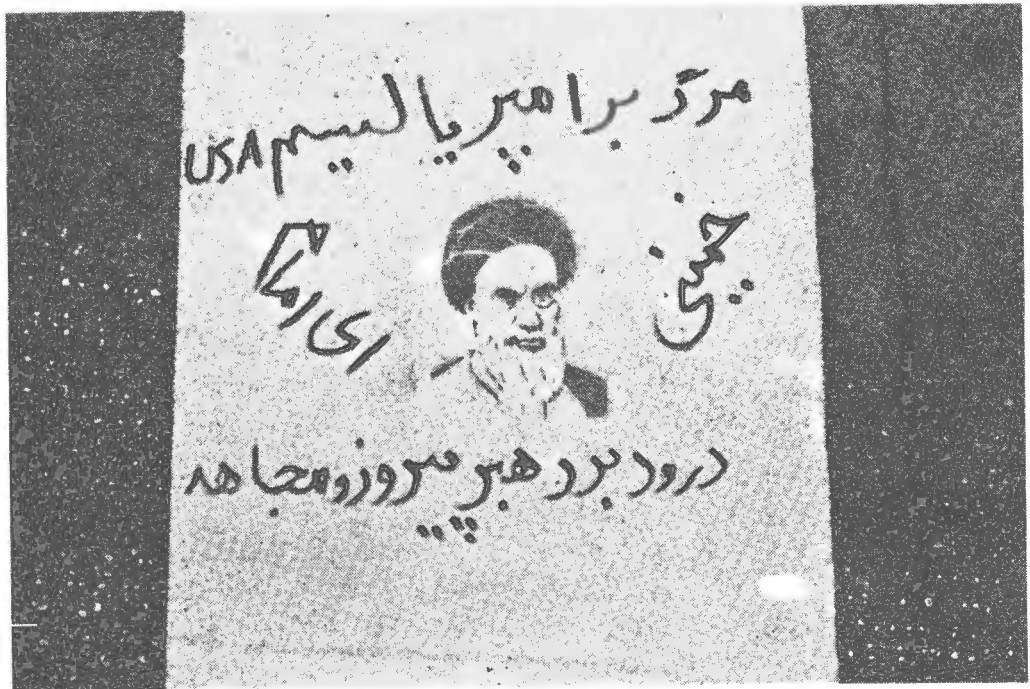 مرگ بر امپریالیسم USA
خمینی
ای امام
درود بر رهبر پیروز و مجاهد